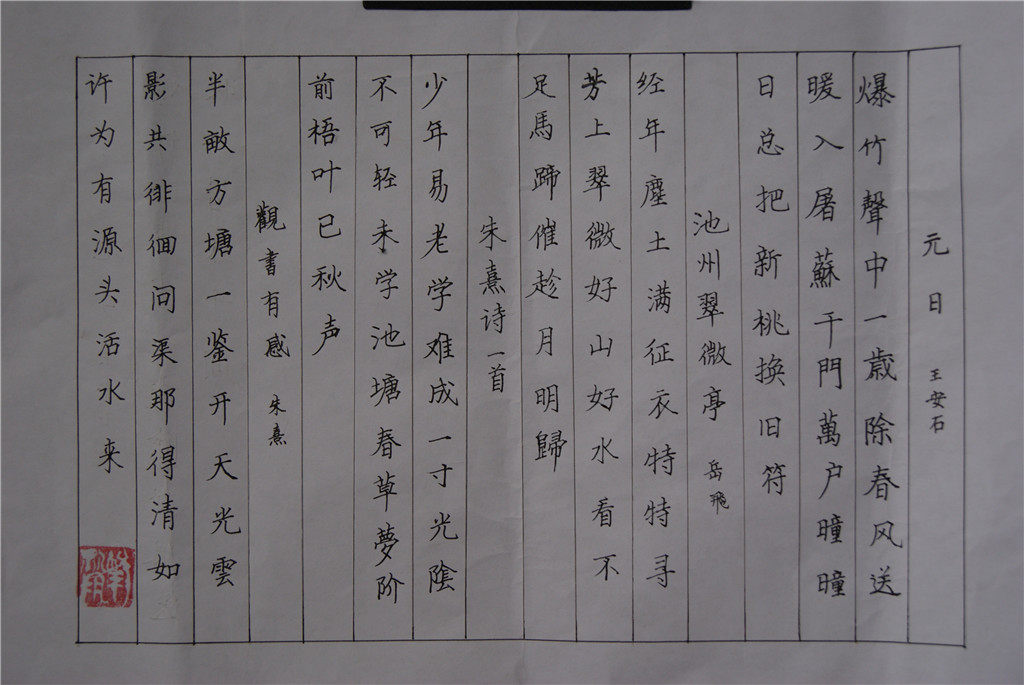 元日 王安石
爆竹聲中一歲除春风送
暖入屠蘇千門萬户曈曈
日总把新桃换旧符
池州翠微亭 岳飛
经年塵土满征衣特特寻
芳上翠微好山好水看不
足馬蹄催趁月明歸
朱熹诗一首
少年易老学难成一寸光陰
不可轻未学池塘春草夢阶
前梧叶已秋声
觀書有感 朱熹
半畝方塘一鉴开天光雲
影共徘徊问渠那得清如
许为有源头活水来